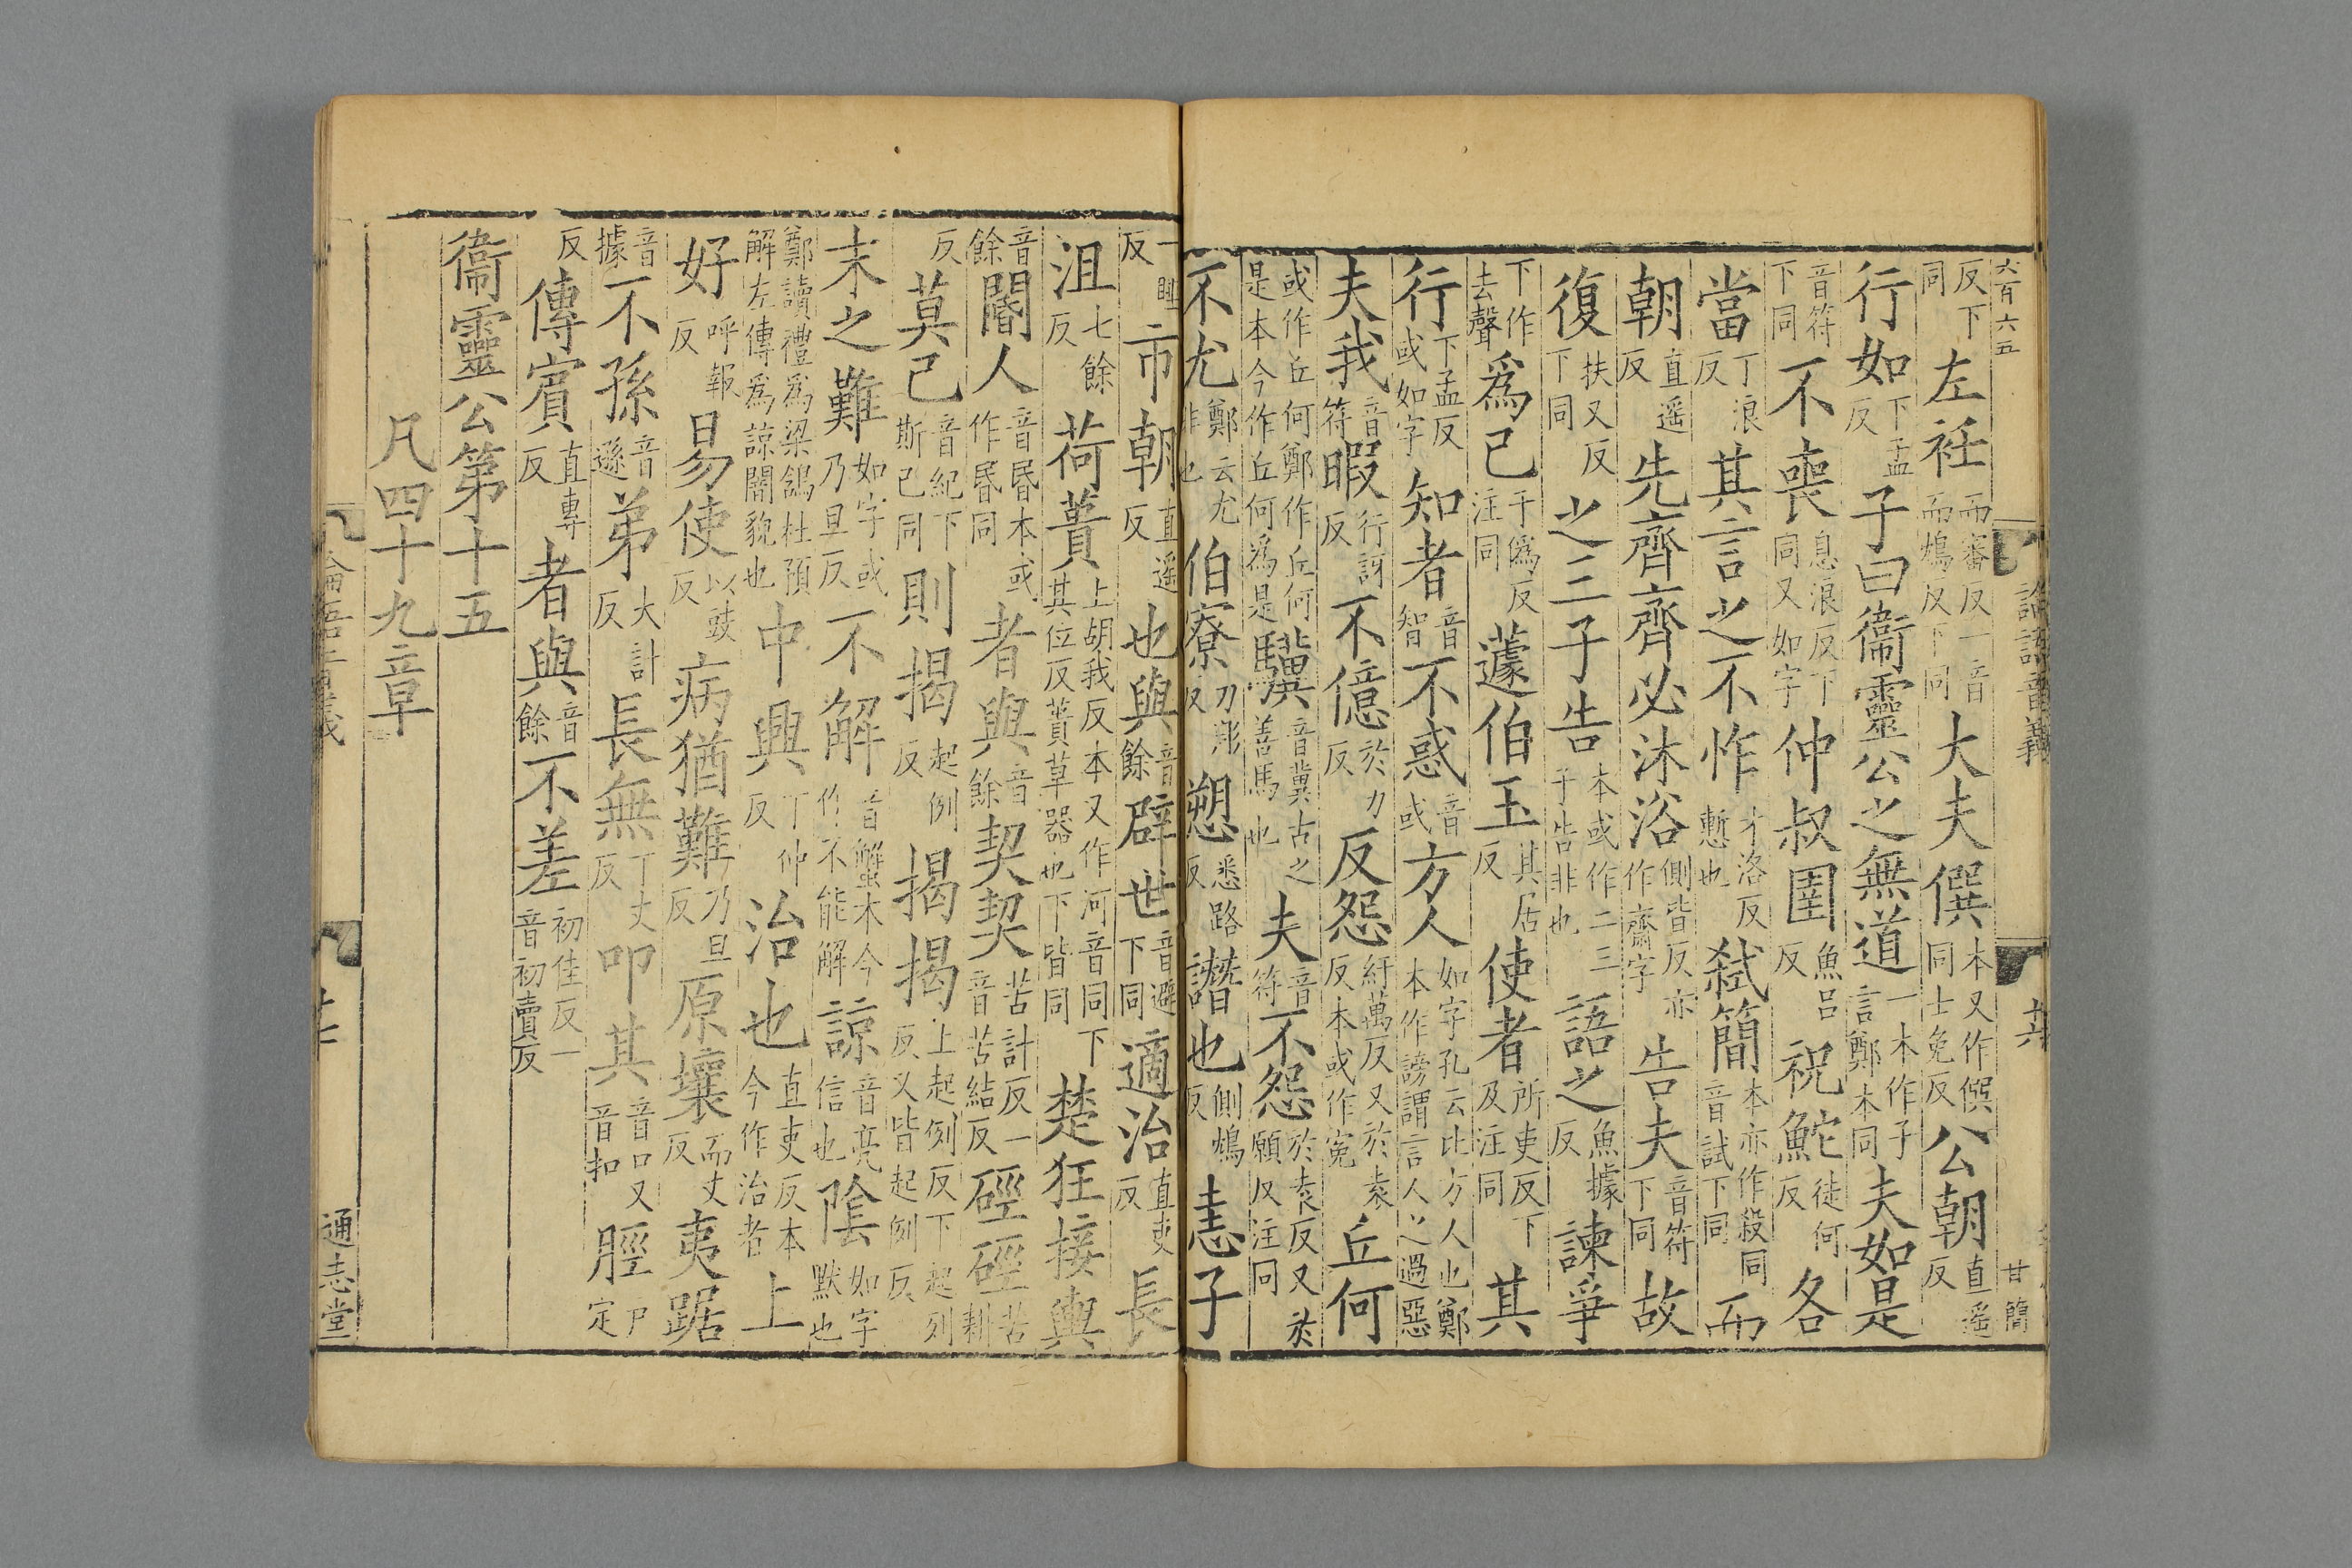 六百六五
論語音義
十六
甘簡
反下同左衽而審反一音而鴆反下同大夫僎本又作僎同士免反公朝直遥反
行如下孟反子曰衞靈公之無道一本作子言鄭本同夫如是
音符下同不喪息浪反下同又如字仲叔圉魚呂反祝鮀徒何反各
當丁浪反其言之不怍才洛反慙也弑簡本亦作殺同音試下同而
朝直遥反先齊齊必沐浴側皆反亦作齋字告夫音符下同故
復扶又反下同之三子告本或作二三子告非也語之魚據反諫爭
下作去聲爲已于僞反注同蘧伯玉其居反使者所吏反下及注同其
行下孟反或如字知者音智不惑音或方人如字孔云比方人也鄭本作謗謂言人之過惡
夫我音符暇行訝反不億於力反反怨紆萬反又於袁反本或作寃丘何
或作丘何鄭作丘何是本今作丘何爲是驥音冀古之善馬也夫音符不怨於袁反又於願反注同
不尤鄭云尤非也伯寮力彫反愬悉路反譖也側鴆反恚子
一睡反市朝直遥反也與音餘辟世音避下同適治直吏反長
沮七餘反荷蕢上胡我反本又作河音同下其位反蕢草器也下皆同楚狂接輿
音餘閽人音昬本或作昬同者與音餘契契苦計反一音苦結反硜硜苦耕
反莫己音紀下斯己同則揭起例反揭揭上起例反下起列反又皆起例反
末之難如字或乃旦反不解音蟹本今作不能解諒音亮信也陰如字默也
鄭讀禮爲梁鵪杜預解左傳爲諒闇貌也中興丁仲反治也直吏反本今作治者上
好呼報反易使以豉反病猶難乃旦反原壤而丈反夷踞
音據不孫音遜弟大計反長無丁丈反叩其音口又音扣脛戸定
反傳賓直專反者與音餘不差初佳反一音初賣反
衞靈公第十五
凡四十九章
論語音義
通志堂